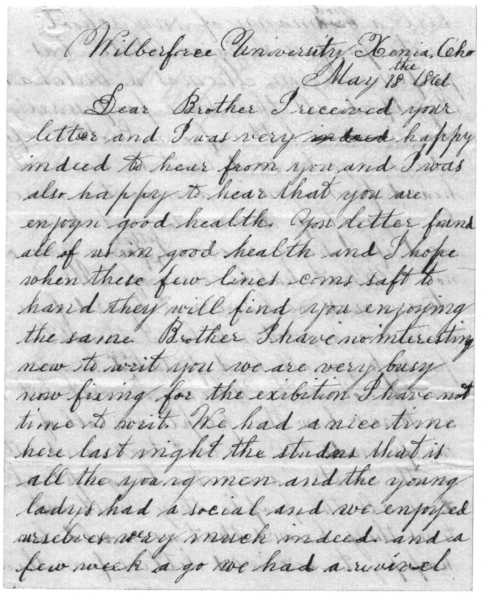 Wilberforce University Xenia, Oho
May 18 the 1861
Dear Brother I received your
letter and I was very indeed happy
indeed to hear from you and I was
also happy to hear that you are
enjoyn good health. You letter found
all of us in good health and I hope
when these few lines coms saft to
hand they will find you enjoying
the same. Brother I have no interesting
new to writ you we are very busy
now fixing for the exibition I have not
time to writ. We had a nice time
here last night the studns that is
all the young men and the young
ladys had a social and we enjoyed
urselves very much indeed. and a
few week a go we had a revivel